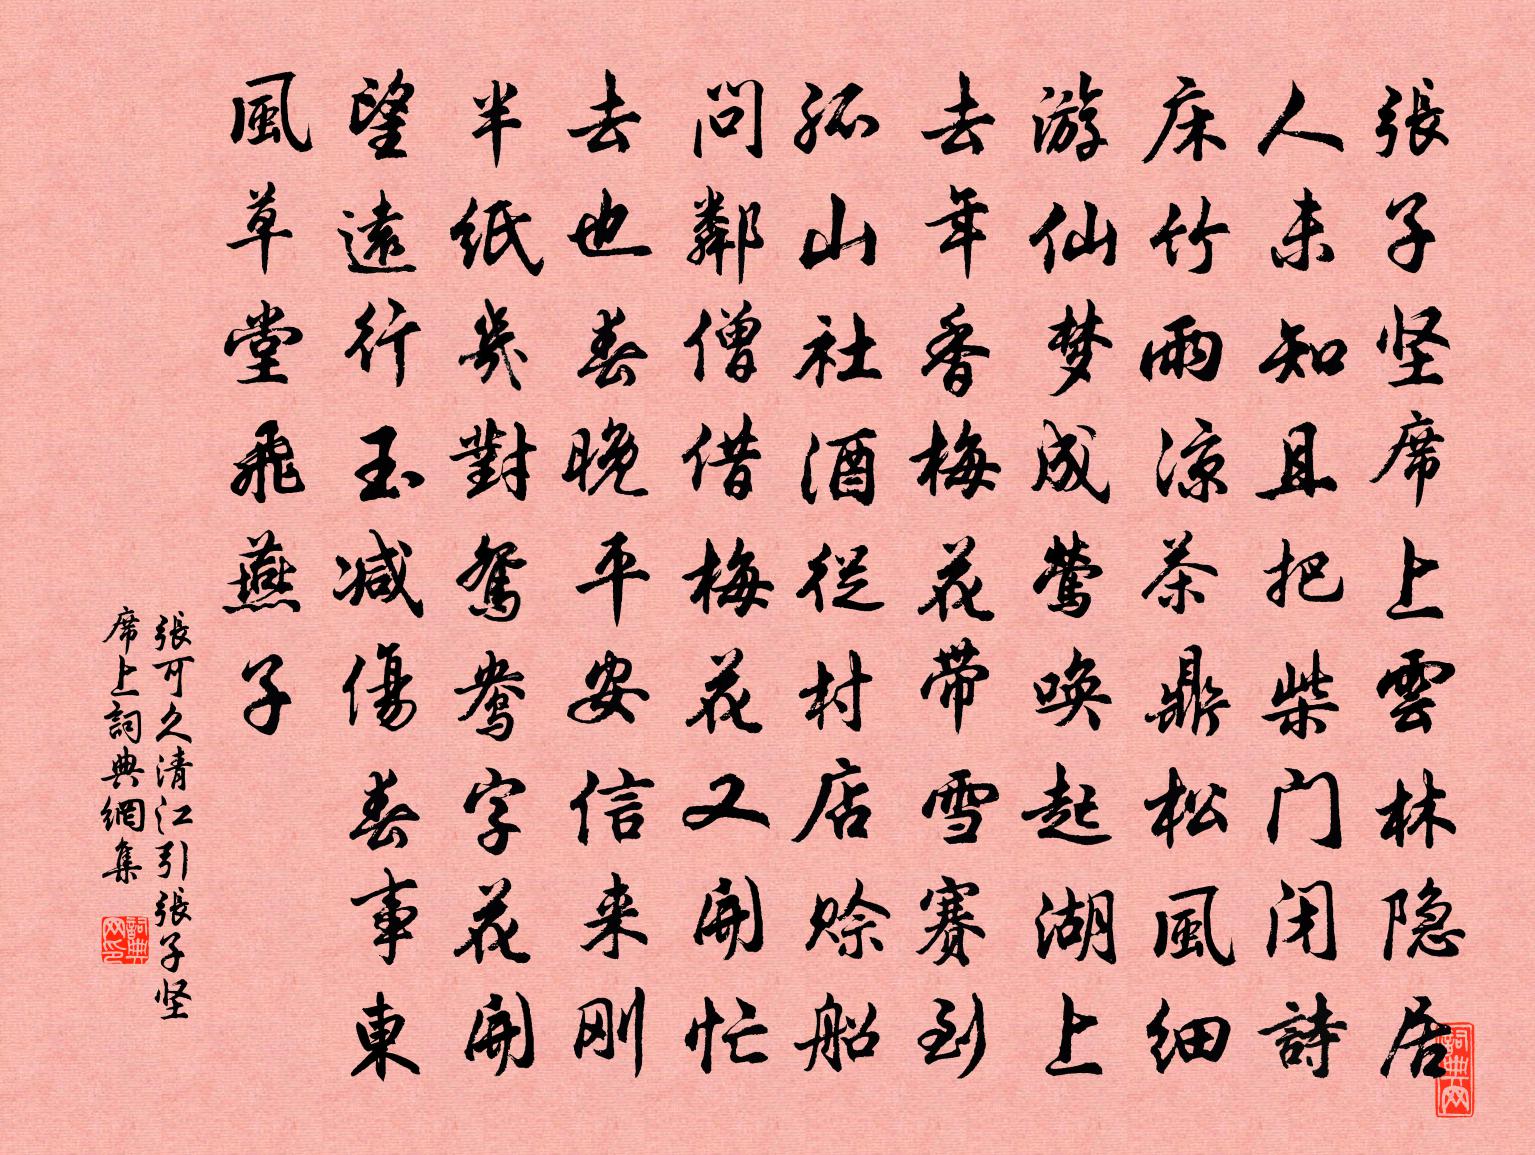 張子坚席上雲林隐居
人未知且把柴门闭詩
床竹雨凉茶鼎松風细
游仙梦成莺唤起湖上
去年香梅花带雪赛到
孤山社酒從村店赊船
问鄰僧借梅花又開忙
去也春晚平安信来刚
半纸幾對鴛鴦字花開
望遠行玉减傷春事東
風草堂飛燕子
張可久清江引張子坚
席上詞典網集
詞典网印
詞典网